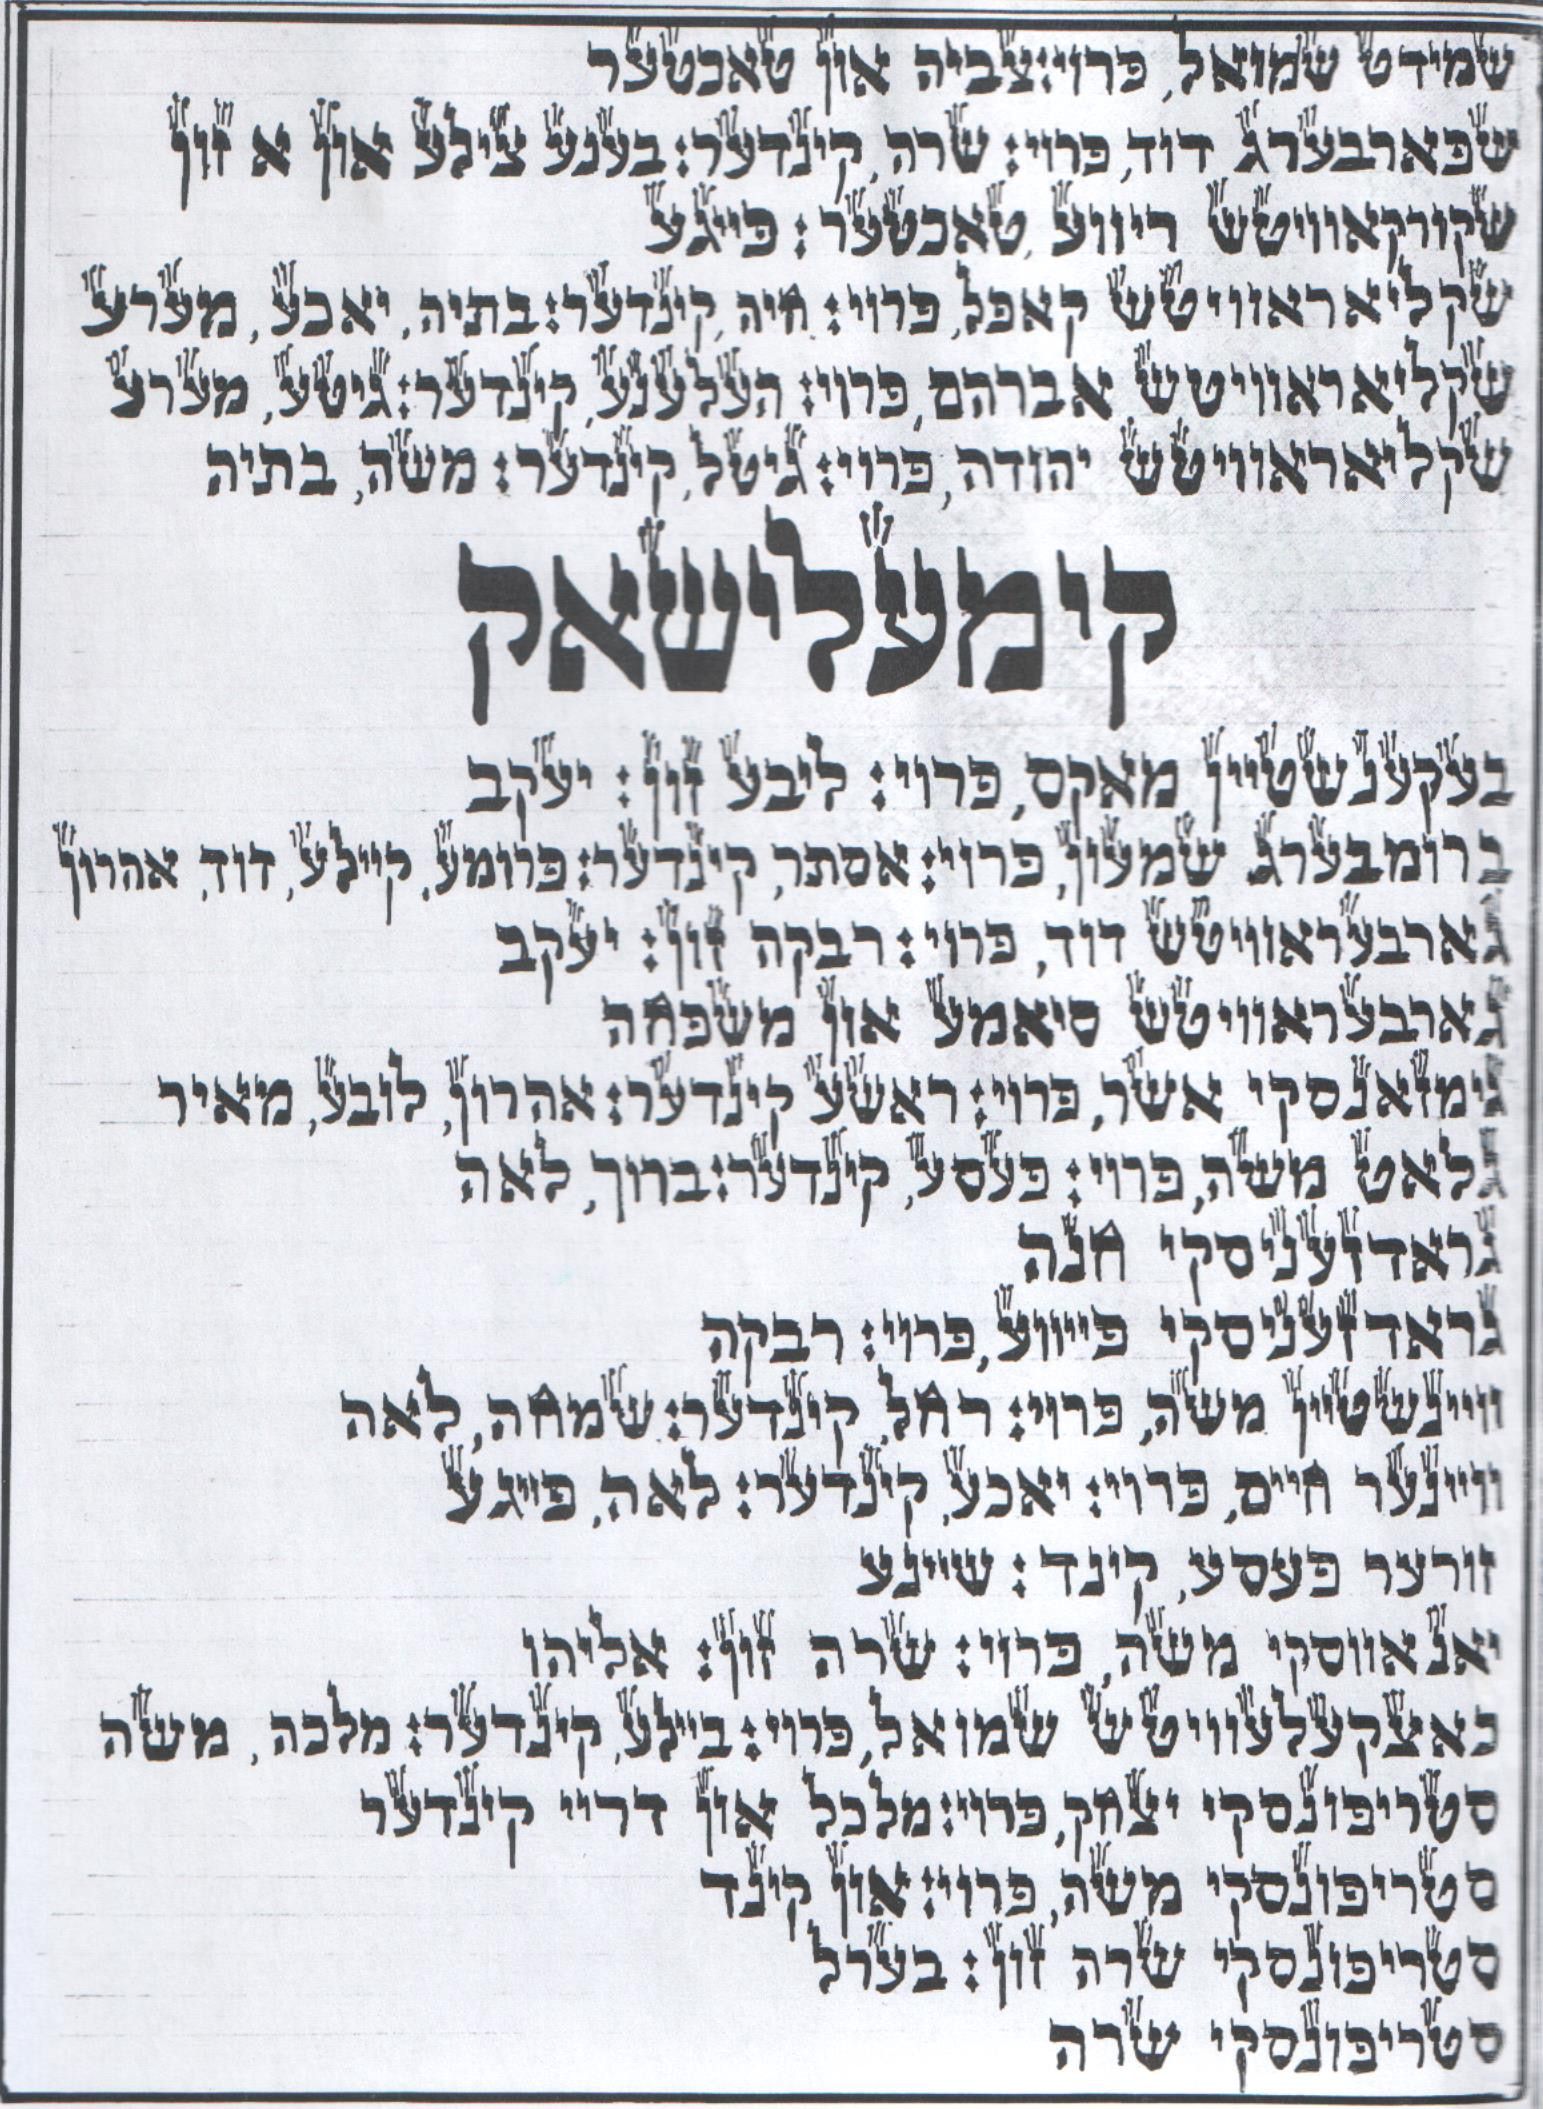 שמידט שמואל, פרוי: צביה און טאכטער
שפארבערג דוד, פרוי: שרה, קינדער: בענע צילע און א זון
שקורקאוויטש ריווע, טאכטער: פייגע
שקליאראוויטש קאפל, פרוי: חיה, קינדער: בתיה, יאכע, מערע
שקליאראוויטש אברהם, פרוי: העלענע, קינדער: גיטע, מערע
שקליאראוויטש יהודה, פרוי: גיטל, קינדער: משה, בתיה
קימעלישאק
בעקענשטיין מאקס, פרוי: ליבע זון: יעקב
ברומבערג שמעון, פרוי: אסתר, קינדער: פרומע, קיילע, דוד, אהרון
גארבעראוויטש דוד, פרוי: רבקה זון: יעקב
גארבעראוויטש סיאמע און משפחה
גימזאנסקי אשר, פרוי: ראשע קינדער: אהרון, לובע, מאיר
גלאט משה, פרוי: פעסע, קינדער: ברוך, לאה
גראדזעניסקי חנה
גראדזעניסקי פייווע, פרוי: רבקה
וויינשטיין משה, פרוי: רחל, קינדער: שמחה, לאה
וויינער חיים, פרוי: יאכע, קינדער: לאה, פייגע
זורער פעסע, קינד: שיינע
יאנאווסקי משה, פרוי: שרה זון: אליהו
כאצקעלעוויטש שמואל, פרוי: ביילע, קינדער: מלכה, משה
סטריפונסקי יצחק, פרוי: מלכל און דריי קינדער
סטריפונסקי משה, פרוי: און קינד
סטריפונסקי שרה זון: בערל
סטריפונסקי שרה